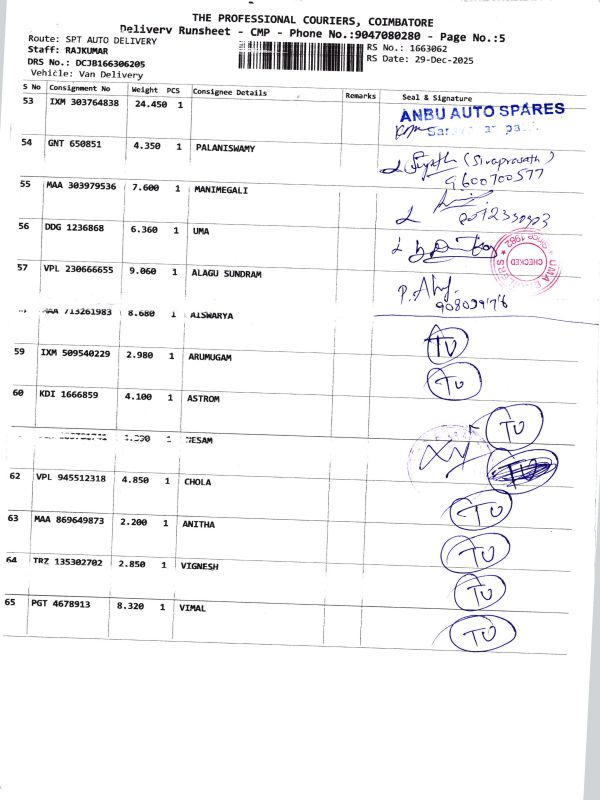 THE PROFESSIONAL COURIERS, COIMBATORE
Delivery Runsheet - CMP - Phone No.:9047080280 - Page No.:5
Route: SPT AUTO DELIVERY
Staff: RAJKUMAR
RS No.: 1663062
DRS No.: DCJB166306205
RS Date: 29-Dec-2025
Vehicle: Van Delivery
S No Consignment No Weight PCS Consignee Details Remarks Seal & Signature
53 IXM 303764838 24.450 1 ANBU AUTO SPARES
54 GNT 650851 4.350 1 PALANISWAMY (Sivaprasath)
9600700577
55 MAA 303979536 7.600 1 MANIMEGALI
56 DDG 1236868 6.360 1 UMA
CHECKED
57 VPL 230666655 9.060 1 ALAGU SUNDRAM
MAA 713261983 8.680 1 AISWARYA TU
59 IXM 509540229 2.980 1 ARUMUGAM TU
60 KDI 1666859 4.100 1 ASTROM TU
1 TU
62 VPL 945512318 4.850 1 CHOLA TU
63 MAA 869649873 2.200 1 ANITHA TU
64 TRZ 135302702 2.850 1 VIGNESH TU
65 PGT 4678913 8.320 1 VIMAL TU